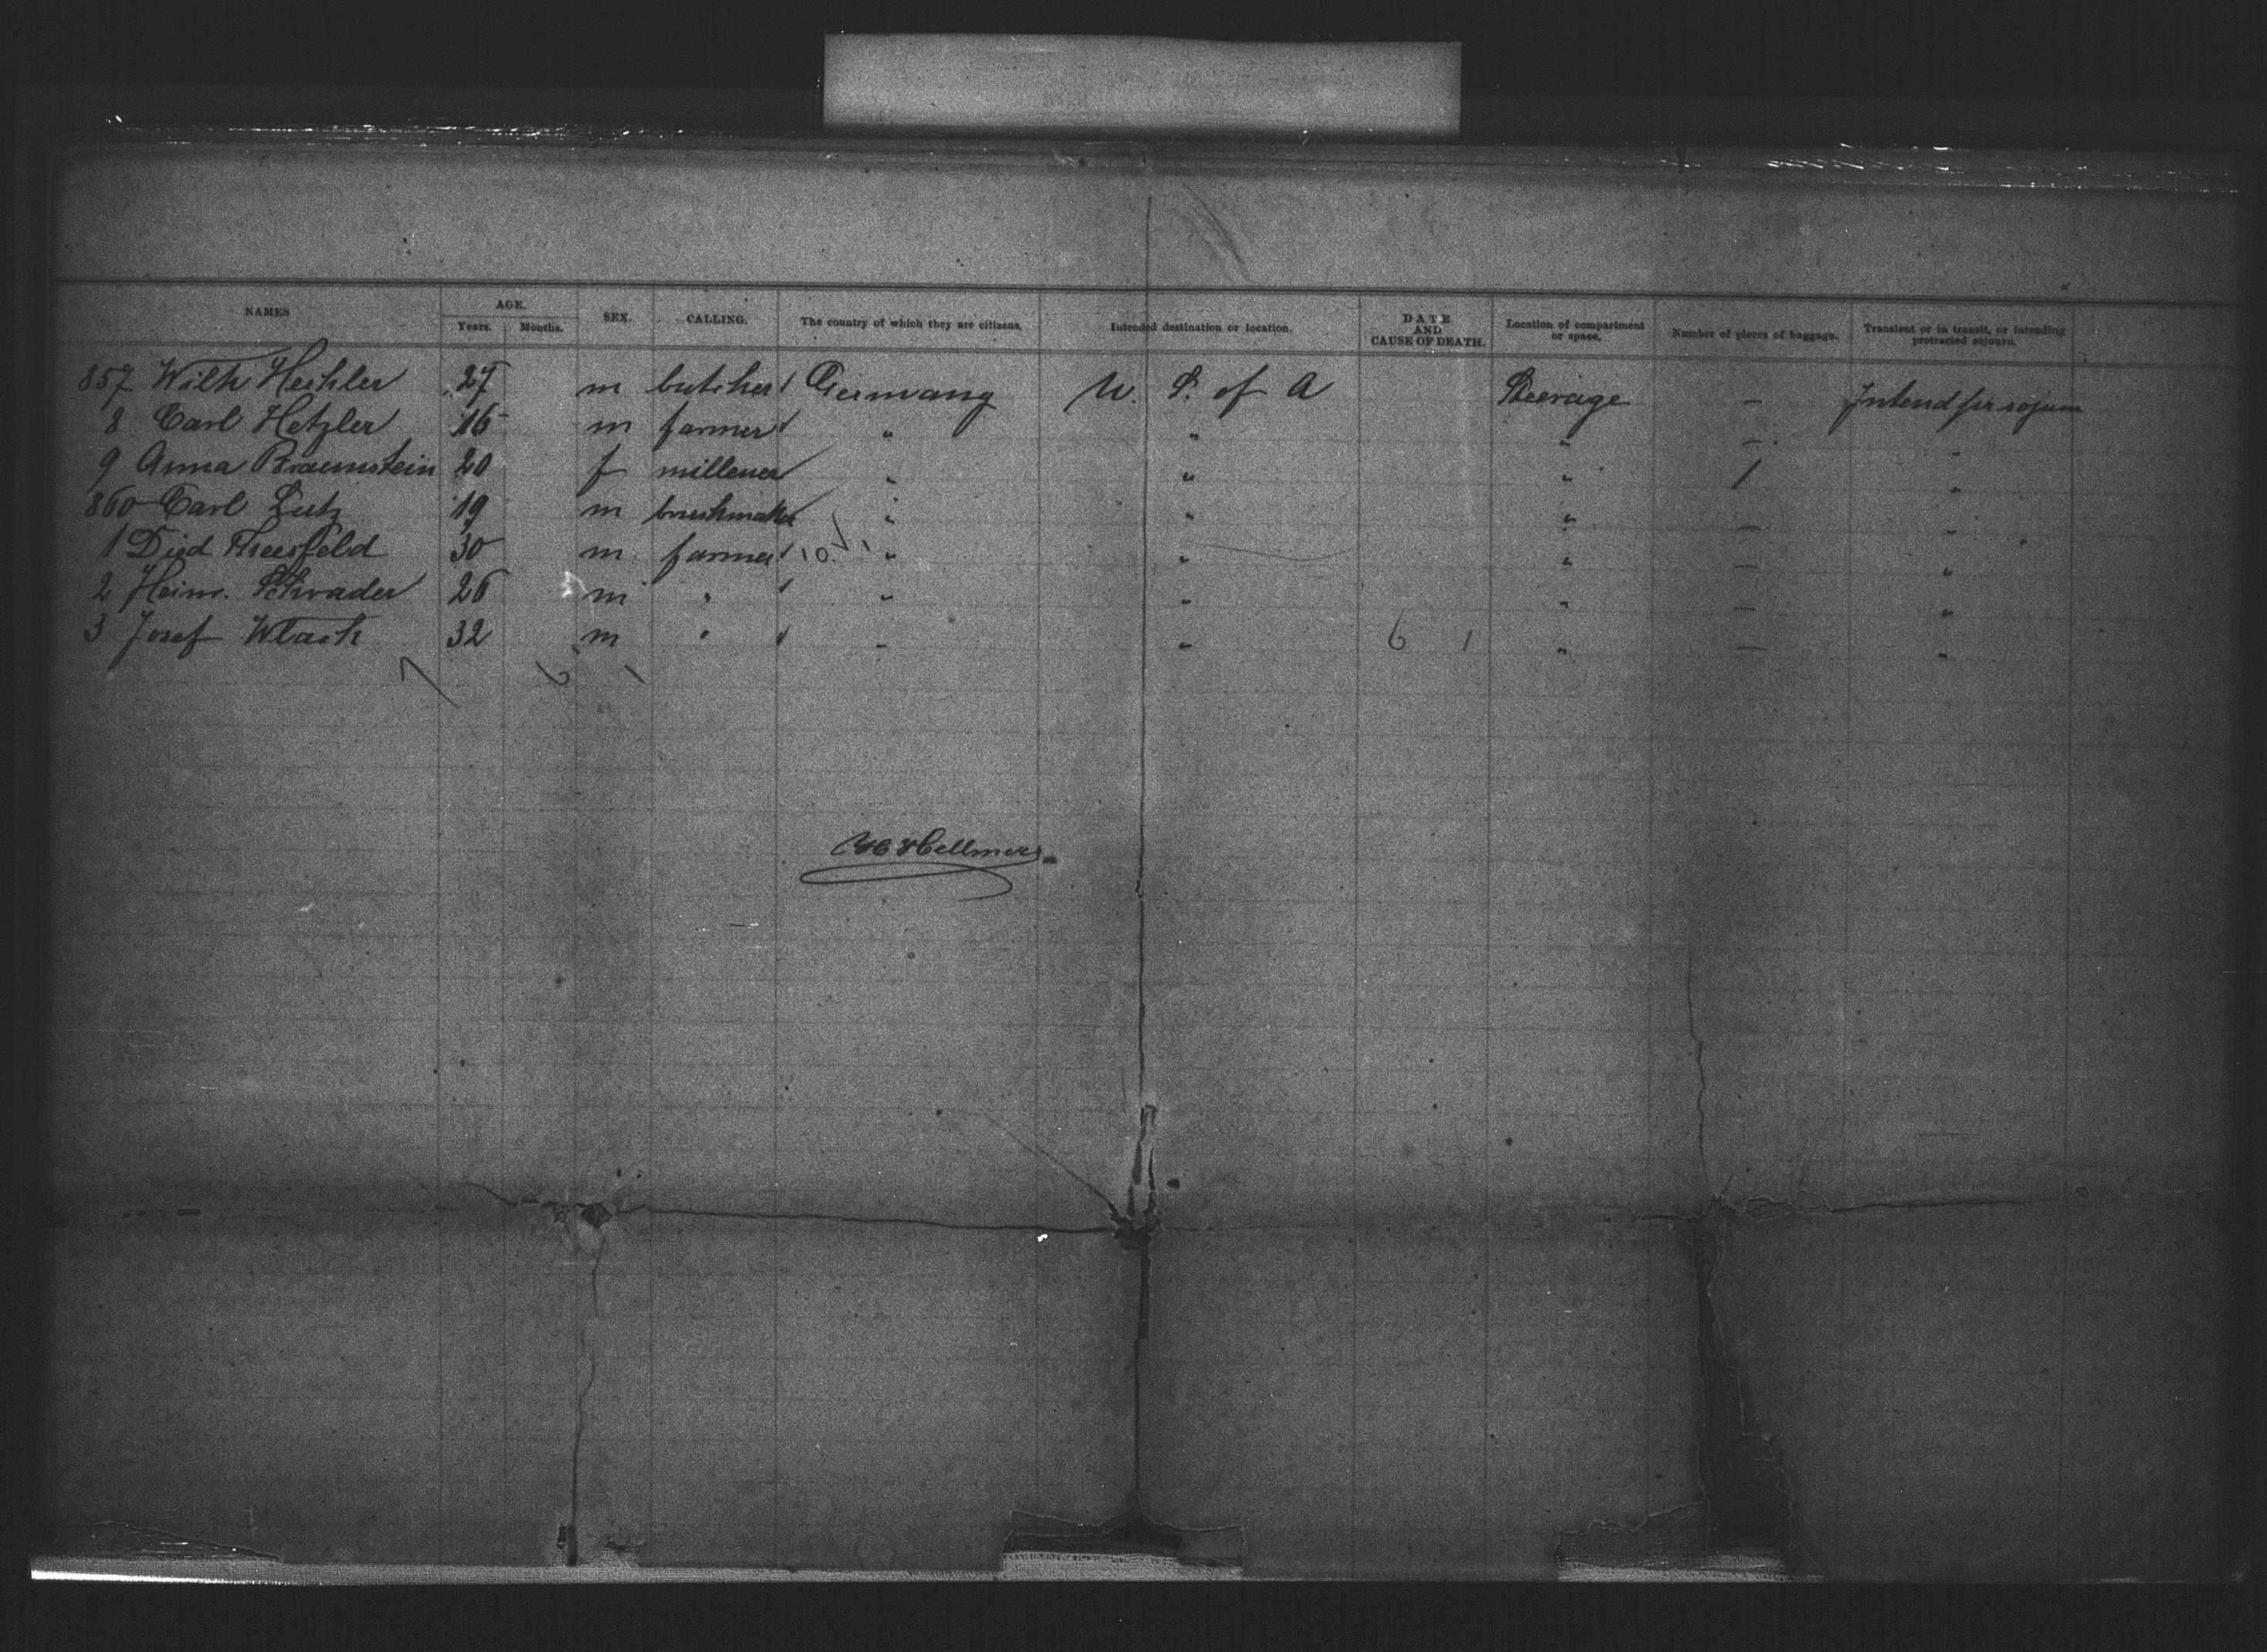 NAMES AGE. SEX. CALLING. The country of which they are citizens. Intended destination or location. DATE AND CAUSE OF DEATH. Location of compartment or space. Number of pieces of baggage. Transient or in transit, or intending protracted sojourn.
Years. Months.
857 Wilh Hechler 27 m butcher Germany U. S. of A Steerage — Intend pr sojurn
8 Carl Hetzler 16 m farmer " " " — "
9 Anna Braunstein 20 f millener " " " 1 "
860 Carl Lutz 19 m brushmaker " " " — "
1 Died Heesfeld 30 m farmer 10 " " " — "
2 Heinr. Schrader 26 m " " " " — "
3 Josef Wlach 32 m " " " 6 1 " — "
7 6 1
Hellmers